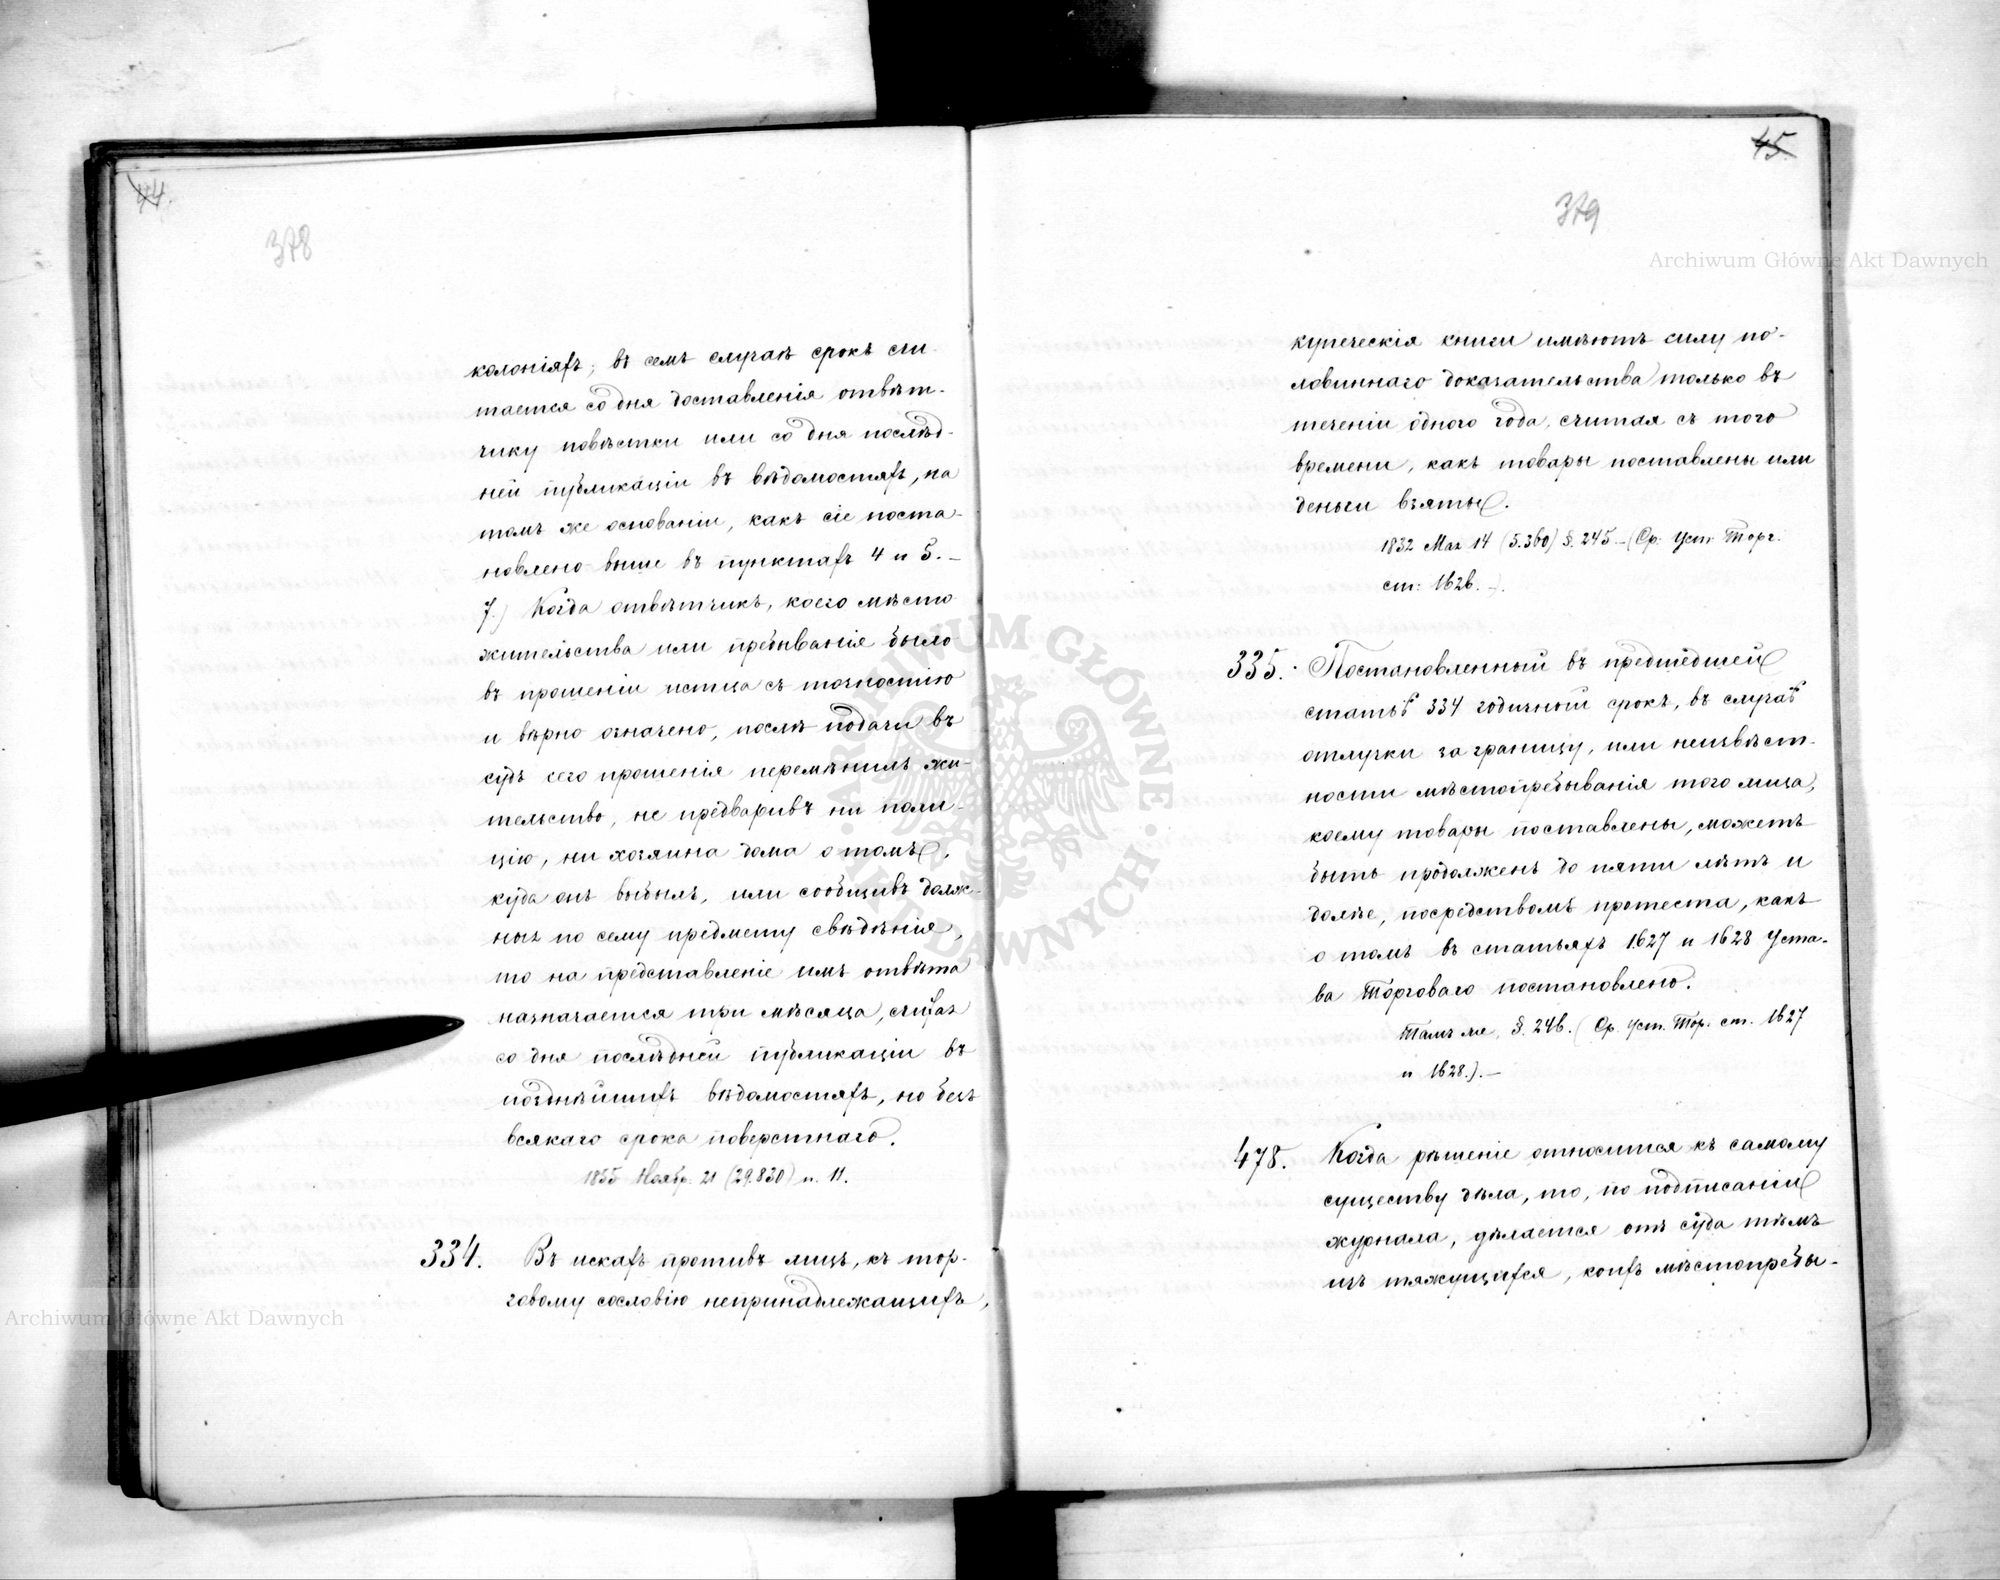 44.
378
колоніяхъ; въ семъ случаѣ срокъ счи-
тается со дня доставленія отвѣт-
чику повѣстки или со дня послѣд-
ней публикаціи въ вѣдомостяхъ, на
томъ же основаніи, какъ сіе поста-
новлено выше въ пунктахъ 4 и 5. —
7.) Когда отвѣтчикъ, коего мѣсто
жительства или пребываніе было
въ прошеніи истца съ точностію
и вѣрно означено, послѣ подачи въ
судъ сего прошенія перемѣнилъ жи-
тельство, не предваривъ ни поли-
цію, ни хозяина дома о томъ,
куда онъ выбылъ, или сообщивъ долж-
ныя по сему предмету свѣдѣнія,
то на представленіе имъ отвѣта
назначается три мѣсяца, считая
со дня послѣдней публикаціи въ
позднѣйшихъ вѣдомостяхъ, но безъ
всякаго срока поверстнаго.
1855 Ноябр. 21 (29.830) п. 11.
334. Въ искахъ противъ лицъ, къ тор-
говому сословію непринадлежащихъ,
45
379
купеческія книги имѣютъ силу по-
ловиннаго доказательства только въ
теченіи одного года, считая съ того
времени, какъ товары поставлены или
деньги взяты.
1832 Мая 14 (5.360) §. 245 — (Ср. Уст. Торг.
ст: 1626. —).
335. Постановленный въ предшедшей
статьѣ 334 годичный срокъ, въ случаѣ
отлучки за границу, или неизвѣст-
ности мѣстопребыванія того лица,
коему товары поставлены, можетъ
быть продолженъ до пяти лѣтъ и
долѣе, посредствомъ протеста, какъ
о томъ въ статьяхъ 1627 и 1628 Уста-
ва Торговаго постановлено.
Тамъ же, §. 246. (Ср. Уст. Тор. ст. 1627
и 1628.). —
478. Когда рѣшеніе относится къ самому
существу дѣла, то, по подписаніи
журнала, дѣлается отъ суда тѣмъ
изъ тяжущихся, коихъ мѣстопребы-
Archiwum Główne Akt Dawnych
Archiwum Główne Akt Dawnych
ARCHIWUM GŁÓWNE AKT DAWNYCH